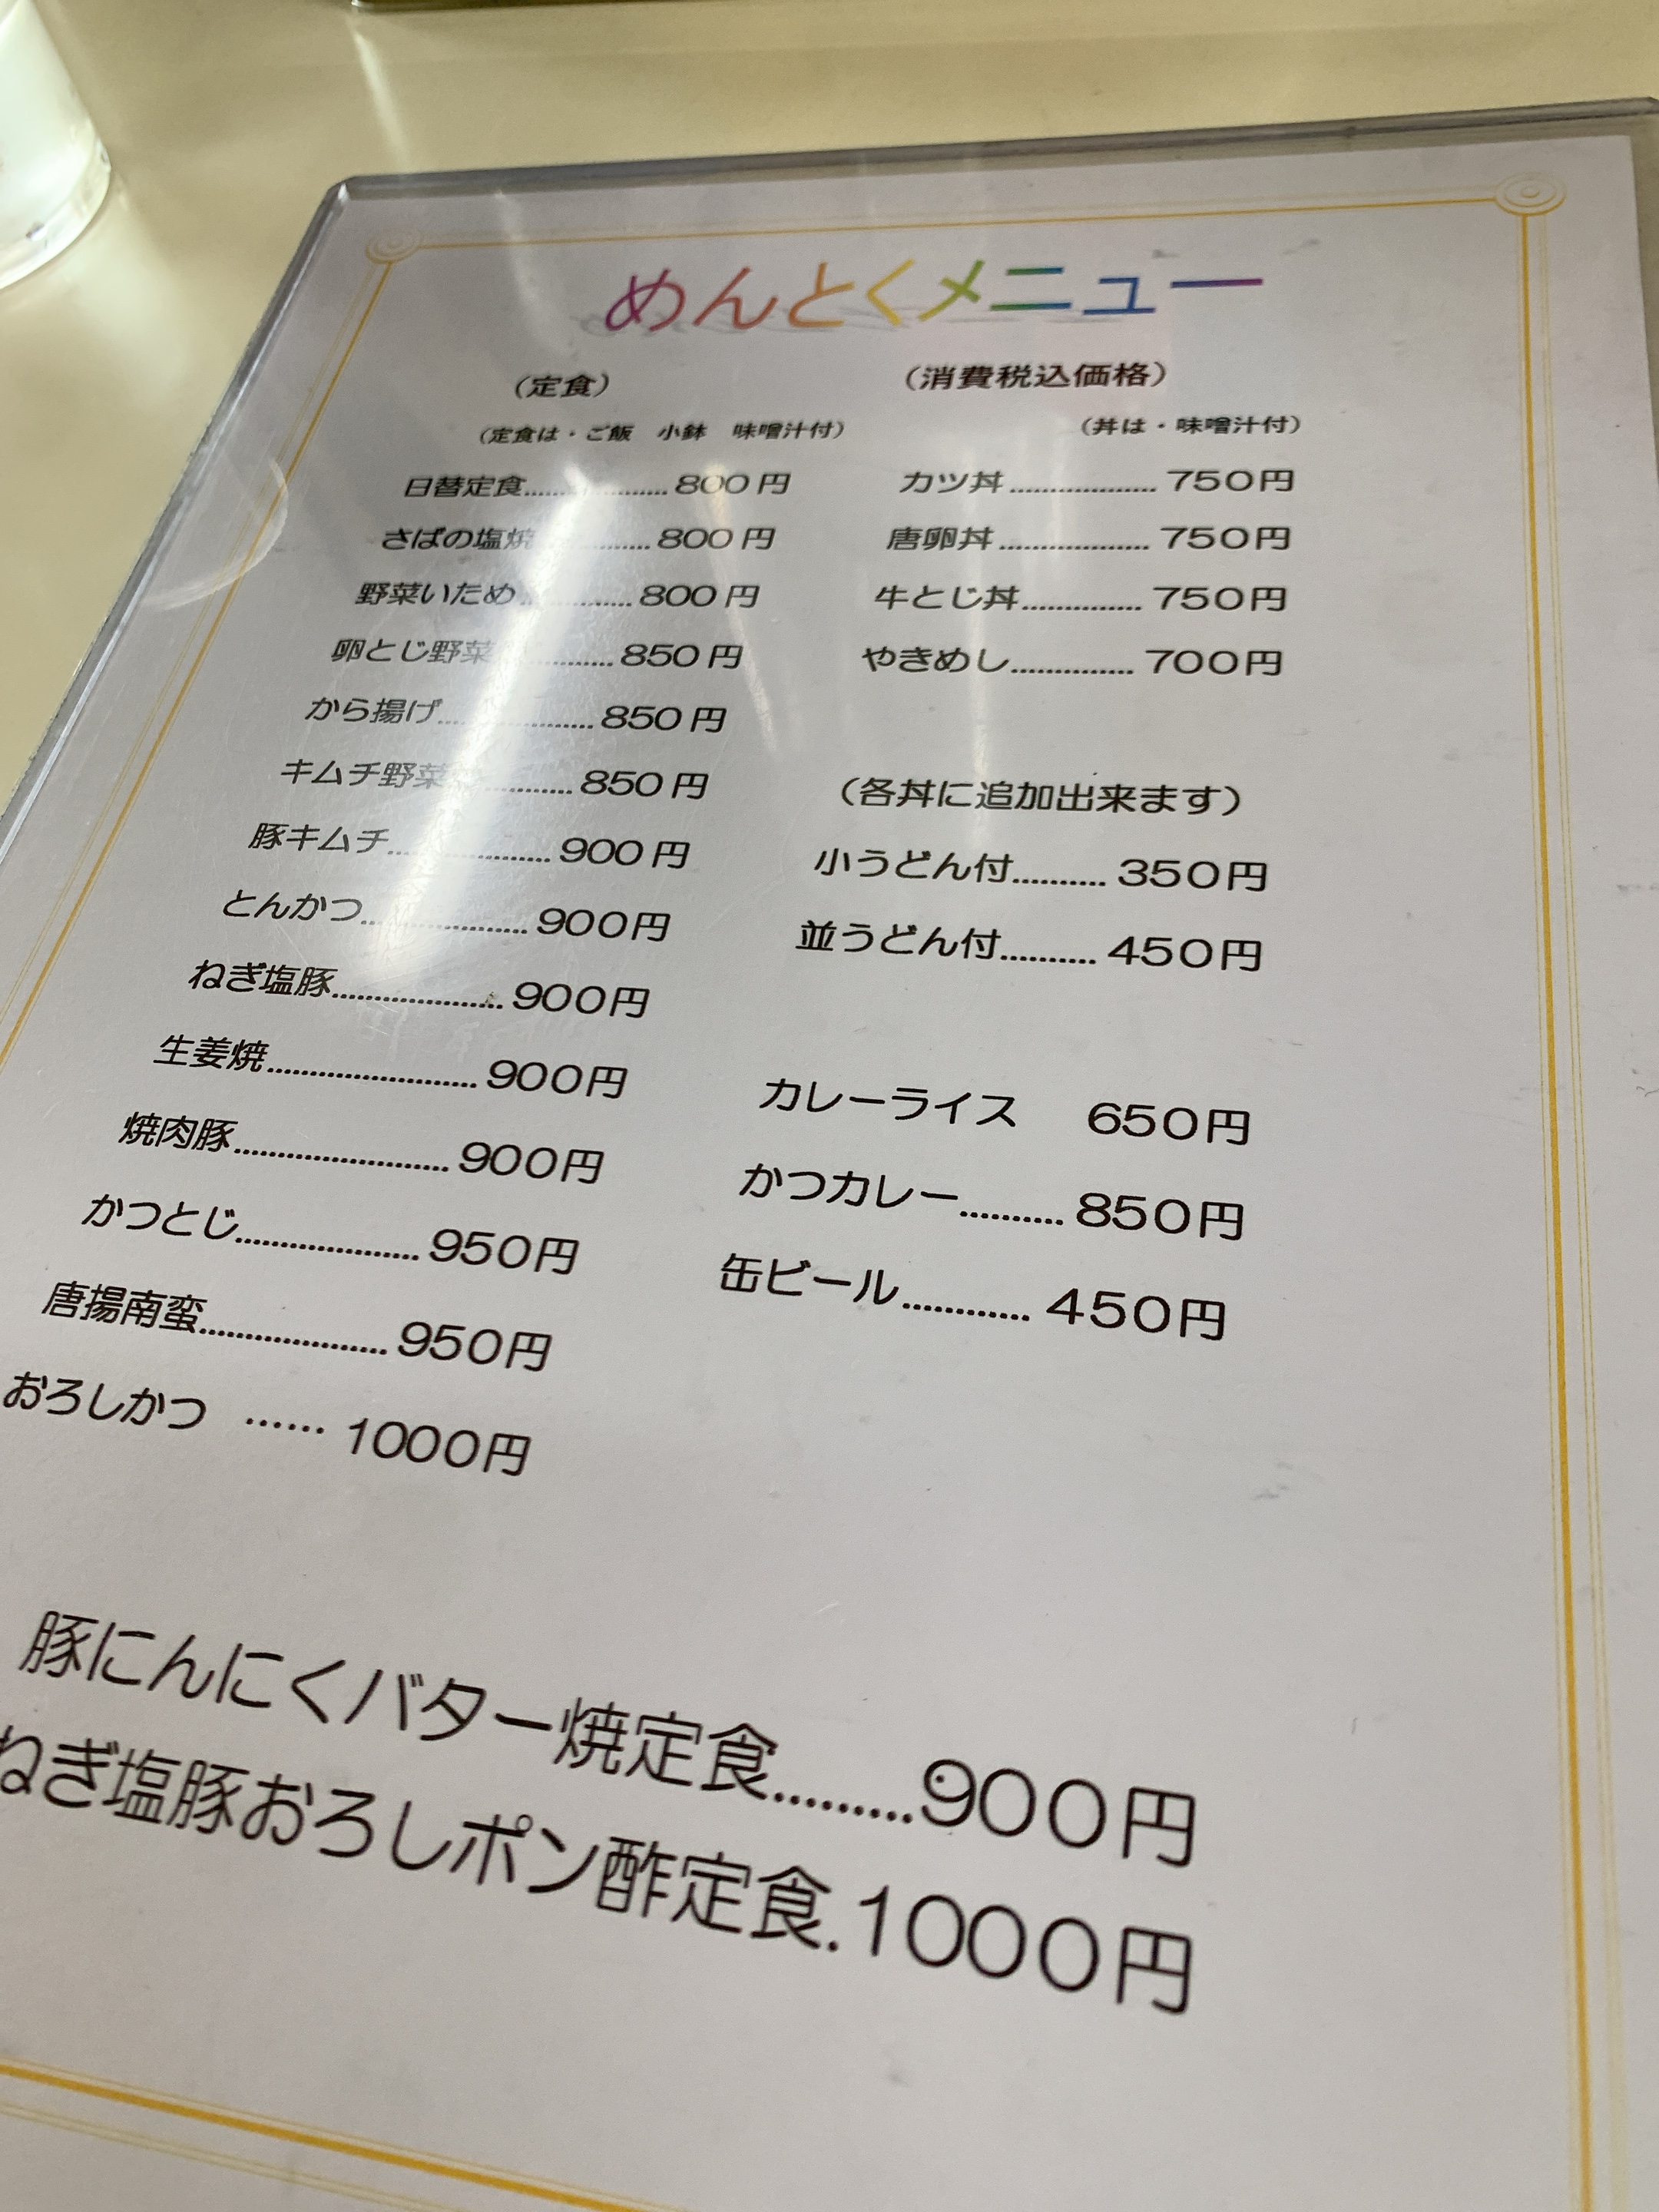 めんとくメニュー
（定食）
（定食は・ご飯　小鉢　味噌汁付）
日替定食....................800円
さばの塩焼..........800円
野菜いため............800円
卵とじ野菜...........850円
から揚げ......................850円
キムチ野菜............850円
豚キムチ......................900円
とんかつ......................900円
ねぎ塩豚......................900円
生姜焼..........................900円
焼肉豚..........................900円
かつとじ......................950円
唐揚南蛮......................950円
おろしかつ　……1000円
（消費税込価格）
（丼は・味噌汁付）
カツ丼....................750円
唐卵丼....................750円
牛とじ丼................750円
やきめし................700円
（各丼に追加出来ます）
小うどん付..........350円
並うどん付..........450円
カレーライス　650円
かつカレー..........850円
缶ビール............450円
豚にんにくバター焼定食.........900円
ねぎ塩豚おろしポン酢定食.1000円